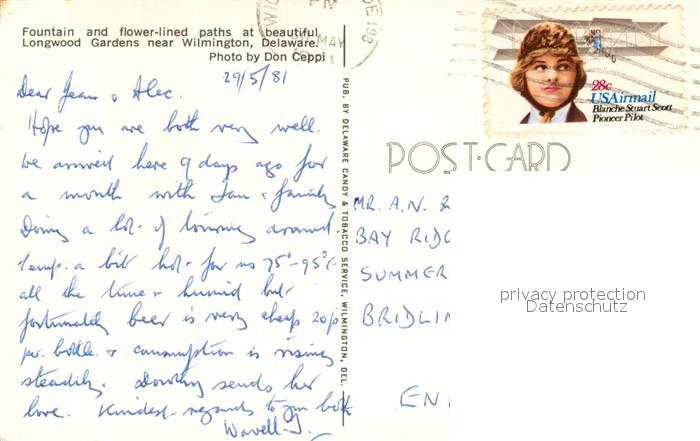 Fountain and flower-lined paths at beautiful
Longwood Gardens near Wilmington, Delaware.
Photo by Don Ceppi
29/5/81
Dear Jean & Alec.
Hope you are both very well.
We arrived here 9 days ago for
a month with Ian & family
Doing a lot of touring around.
Temp. a bit hot for us 75°-95°
all the time & humid but
fortunately beer is very cheap 20p
per bottle & consumption is rising
steadily. Dorothy sends her
love. Kindest regards to you both
PUB. BY DELAWARE CANDY & TOBACCO SERVICE, WILMINGTON, DEL.
MAY
28c
USAirmail
Blanche Stuart Scott
Pioneer Pilot
POST CARD
MR. A.N.
BAY RIDG
SUMMER
BRIDLIN
EN
privacy protection
Datenschutz